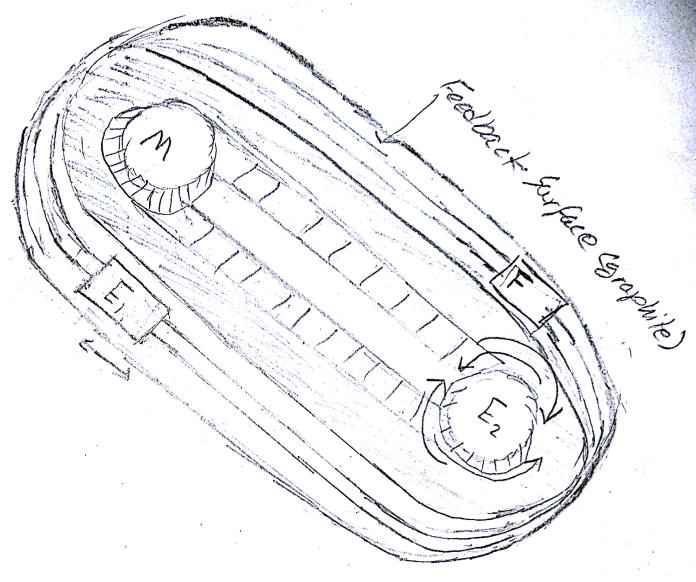 M
Feedback Surface (graphite)
F
E1
E2